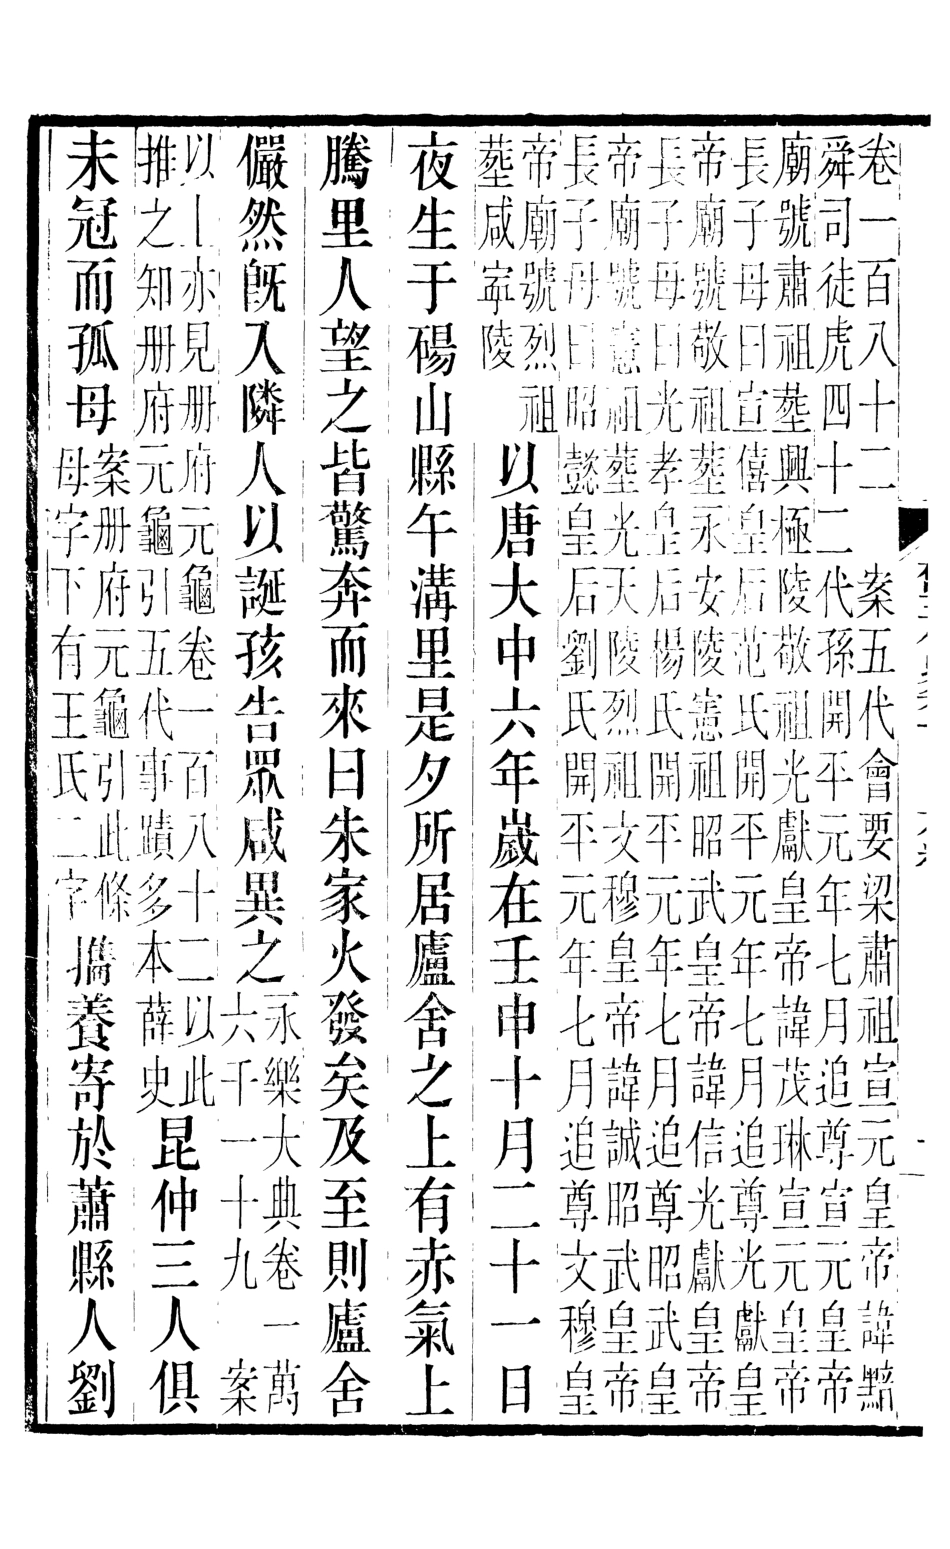 卷一百八十二　案五代會要梁肅祖宣元皇帝諱黯
舜司徒虎四十二代孫開平元年七月追尊宣元皇帝
廟號肅祖葬興極陵敬祖光獻皇帝諱茂琳宣元皇帝
長子母曰宣僖皇后范氏開平元年七月追尊光獻皇
帝廟號敬祖葬永安陵憲祖昭武皇帝諱信光獻皇帝
長子母曰光孝皇后楊氏開平元年七月追尊昭武皇
帝廟號憲祖葬光天陵烈祖文穆皇帝諱誠昭武皇帝
長子母曰昭懿皇后劉氏開平元年七月追尊文穆皇
帝廟號烈祖
葬咸寧陵
以唐大中六年歲在壬申十月二十一日
夜生于碭山縣午溝里是夕所居廬舍之上有赤氣上
騰里人望之皆驚奔而來曰朱家火發矣及至則廬舍
儼然旣入隣人以誕孩告眾咸異之
永樂大典卷一萬
六千一十九　案
以上亦見册府元龜卷一百八十二以此
推之知册府元龜引五代事蹟多本薛史
昆仲三人俱
未冠而孤母
案册府元龜引此條
母字下有王氏二字
攜養寄於蕭縣人劉